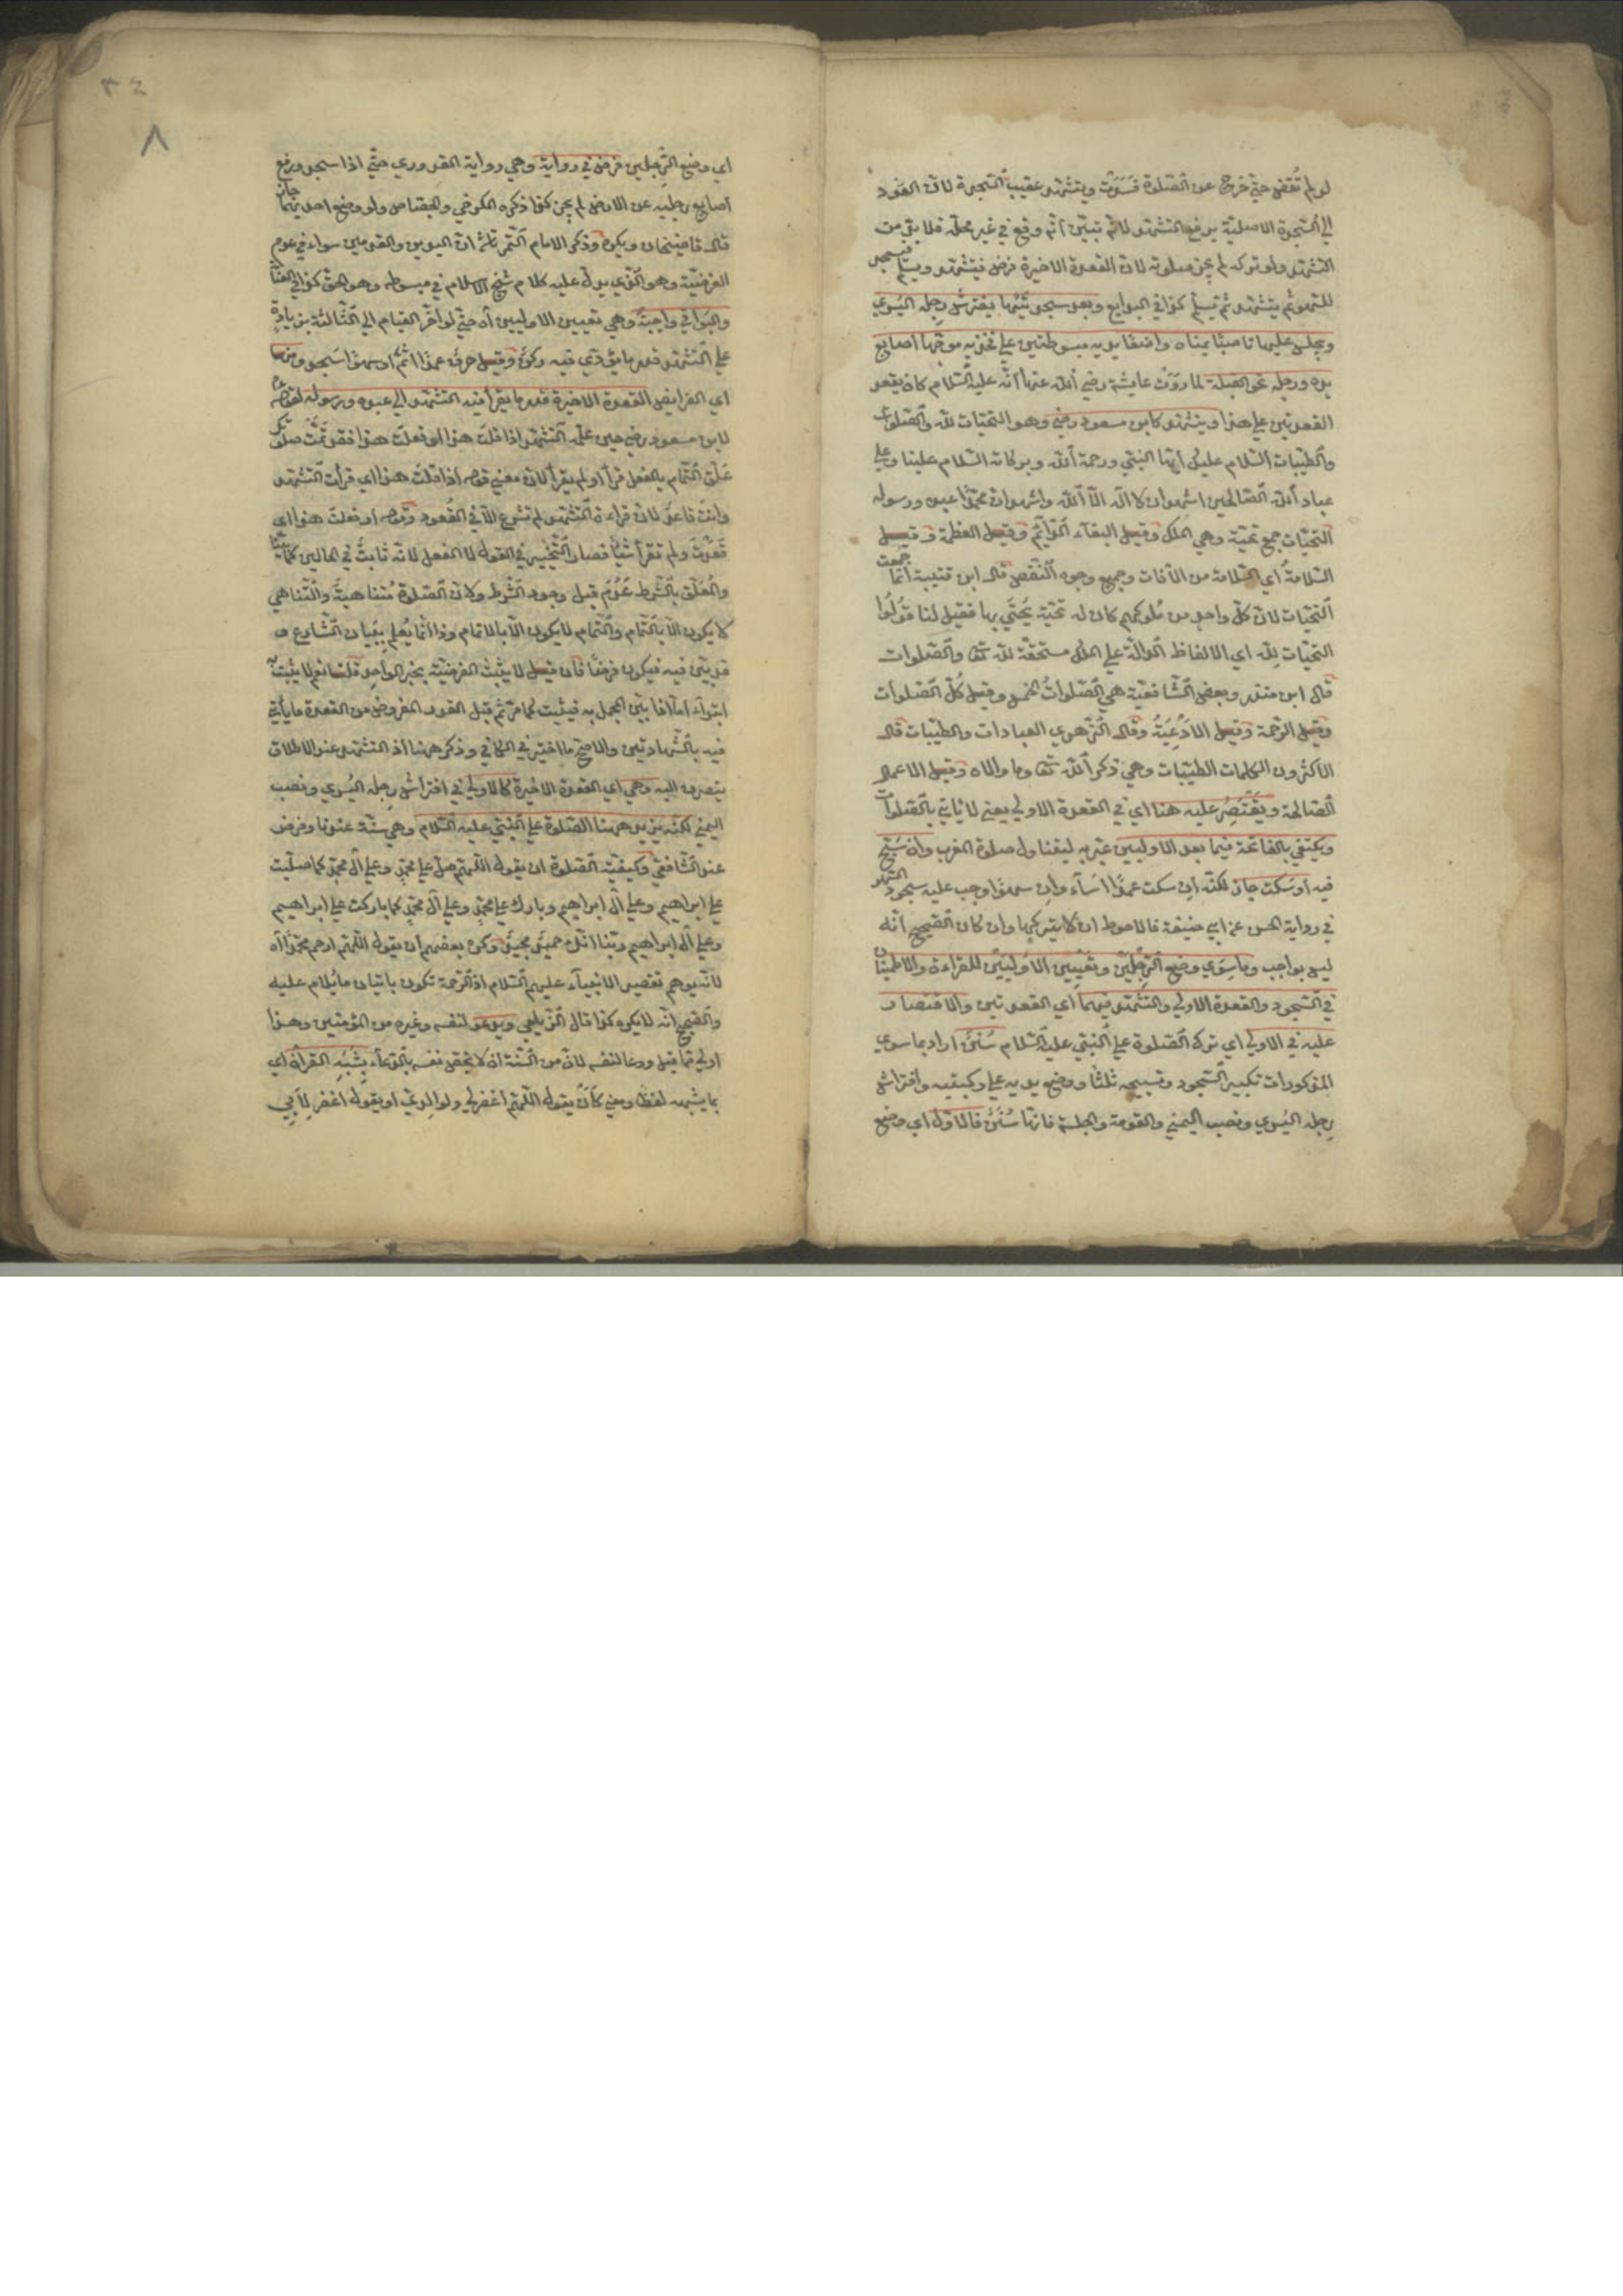 لو لم تقض حتى خرج عن الصلوة فسدت ويتشهد عقيب السجدة لان العود
الى السجدة الاصلية يرفع التشهد لانه تبين انه وقع في غير محله فلا بد من
التشهد ولو تركه لم يجز صلوته لان القعدة الاخيرة فرض فيتشهد ويسلم فيسجد
للسهو ثم يتشهد ثم يسلم كذا في البدايع وبعد سجدتيها يفترش رجله اليسري
ويجلس عليها ناصبا يمناه واضعا يديه مبسوطتين علي فخذيه موجها اصابع
يده ورجله نحو القبلة لما روت عايشة رضي الله عنها انه عليه السلام كان يقعد
القعدتين علي هذا ويتشهد كابن مسعود رضي وهو التحيات لله والصلوات
والطيبات السلام عليك ايها النبي ورحمة الله وبركاته السلام علينا وعلي
عباد الله الصالحين اشهد ان لا اله الا الله واشهد ان محمدا عبده ورسوله
التحيات جمع تحية وهي الملك وقيل البقاء الدائم وقيل العظمة وقيل
السلامة اي السلامة من الآفات وجميع وجوه النقص قال ابن قتيبة انما جمعت
التحيات لان كل واحد من ملوكهم كان له تحية يحيى بها فقيل لنا قولوا
التحيات لله اي الالفاظ الدالة علي الملك مستحقة لله تعا والصلوات
قال ابن منذر وبعض الشافعية هي الصلوات الخمس وقيل كل الصلوات
وقيل الرحمة وقيل الادعية وقال الزهري العبادات والطيبات قال
الاكثرون الكلمات الطيبات وهي ذكر الله تعا وما والاه وقيل الاعمال
الصالحة ويقتصر عليه هنا اي في القعدة الاولي يعني لا ياتي بالصلوات
ويكتفي بالفاتحة فيما بعد الاوليين عبر به ليتناول صلوة المغرب وان سبح
فيه او سكت جاز لكنه ان سكت عمدا اساء وان سهوا وجب عليه سجود السهو
في رواية الحسن عن ابي حنيفة فالاحوط ان لا يتركها وان كان الصحيح انه
ليس بواجب وما سوي وضع الرجلين وتعيين الاوليين للقراءة والاطمينان
في السجود والقعدة الاولي والتشهد فيهما اي القعدتين والاقتصار
عليه في الاولي اي ترك الصلوة علي النبي عليه السلام سنن اراد بما سوي
المذكورات تكبير السجود وتسبيحه ثلثا ووضع يديه علي ركبتيه وافتراش
رجله اليسري ونصب اليمني والقومة والجلسة فانها سنن فالاول اي وضع
٣٤
٨
اي وضع الرجلين فرض في رواية وهي رواية القدوري حتي اذا سجد ورفع
اصابع رجليه عن الارض لم يجز كذا ذكره الكرخي والجصاص ولو وضع احديهما جاز
قال قاضيخان ويكره وذكر الامام التمرتاشي ان اليدين والقدمين سواء في عدم
الفرضية وهو الذي يدل عليه كلام شيخ الاسلام في مبسوطه وهو الحق كذا في العناية
والبواقي واجبة وهي تعيين الاوليين اه حتي لو اخر القيام الي الثالثة بزيادة
علي التشهد قدر ما يؤدي فيه ركن وقيل حرف عمدا اثم او سهوا سجد ومنها
اي الفرايض القعدة الاخيرة قدر ما يقرأ فيه التشهد الي عبده ورسوله لقوله عم
لابن مسعود رضي حين علمه التشهد اذا قلت هذا او فعلت هذا فقد تمت صلوتك
علق التمام بالفعل قرأ او لم يقرأ لان معني قوله اذا قلت هذا اي قرأت التشهد
وانت قاعد لان قراءة التشهد لم تشرع الا في القعود وقوله او فعلت هذا اي
قعدت ولم تقرأ شيئا فصار التخيير في القول لا الفعل لانه ثابت في الحالين كما بينا
والمعلق بالشرط عدم قبل وجود الشرط ولان الصلوة متناهية والتناهي
لا يكون الا بالتمام والتمام لا يكون الا بالاتمام وذا انما يعلم ببيان الشارع و
قد بين فيه فيكون فرضا فان قيل لا يثبت الفرضية بخبر الواحد قلنا نعم لا يثبت به
ابتداء اما اذا بين المجمل به فيثبت كما مر ثم قيل القدر المفروض من القعدة ما يأتي
فيه بالشهادتين والاصح ما اختير في الكافي وذكر ههنا اذ التشهد عند الاطلاق
ينصرف اليه وهي اي القعدة الاخيرة كالاولي في افتراش رجله اليسري ونصب
اليمني لكنه يزيد ههنا الصلوة علي النبي عليه السلام وهي سنة عندنا وفرض
عند الشافعي وكيفية الصلوة ان يقول اللهم صل علي محمد وعلي آل محمد كما صليت
علي ابراهيم وعلي آل ابراهيم وبارك علي محمد وعلي آل محمد كما باركت علي ابراهيم
وعلي آل ابراهيم ربنا انك حميد مجيد وكره بعضهم ان يقول اللهم ارحم محمدا اه
لانه يوهم تقصير الانبياء عليهم السلام اذ الرحمة تكون باتيان ما يلام عليه
والصحيح انه لا يكره كذا قال الزيلعي ويدعو لنفسه وغيره من المؤمنين وهذا
اولي مما قيل ودعا لنفسه لان من السنة ان لا يخص نفسه بالدعاء بشبه القرآن اي
بما يشبهه لفظا ومعني كأن يقول اللهم اغفر لي ولوالدي او يقول اغفر لابي